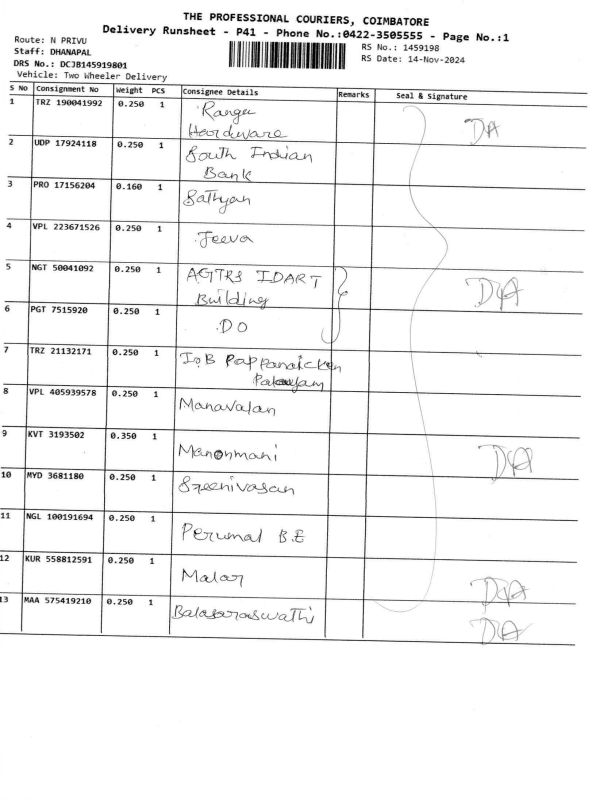 THE PROFESSIONAL COURIERS, COIMBATORE
Delivery Runsheet - P41 - Phone No.:0422-3505555 - Page No.:1
Route: N PRIVU
RS No.: 1459198
Staff: DHANAPAL
RS Date: 14-Nov-2024
DRS No.: DCJB145919801
Vehicle: Two Wheeler Delivery
S No Consignment No Weight PCS Consignee Details Remarks Seal & Signature
1 TRZ 190041992 0.250 1 Ranga
Hardware
2 UDP 17924118 0.250 1 South Indian
Bank
3 PRO 17156204 0.160 1 Sathyan
4 VPL 223671526 0.250 1 Jeeva
5 NGT 50041092 0.250 1 AGTRS IDART
Building
6 PGT 7515920 0.250 1 DO
7 TRZ 21132171 0.250 1 IOB Pappanaicken
Palayam
8 VPL 405939578 0.250 1 Manavalan
9 KVT 3193502 0.350 1 Manonmani
10 MYD 3681180 0.250 1 Sreenivasan
11 NGL 100191694 0.250 1 Perumal B.E
12 KUR 558812591 0.250 1 Malar
13 MAA 575419210 0.250 1 Balasaraswathi